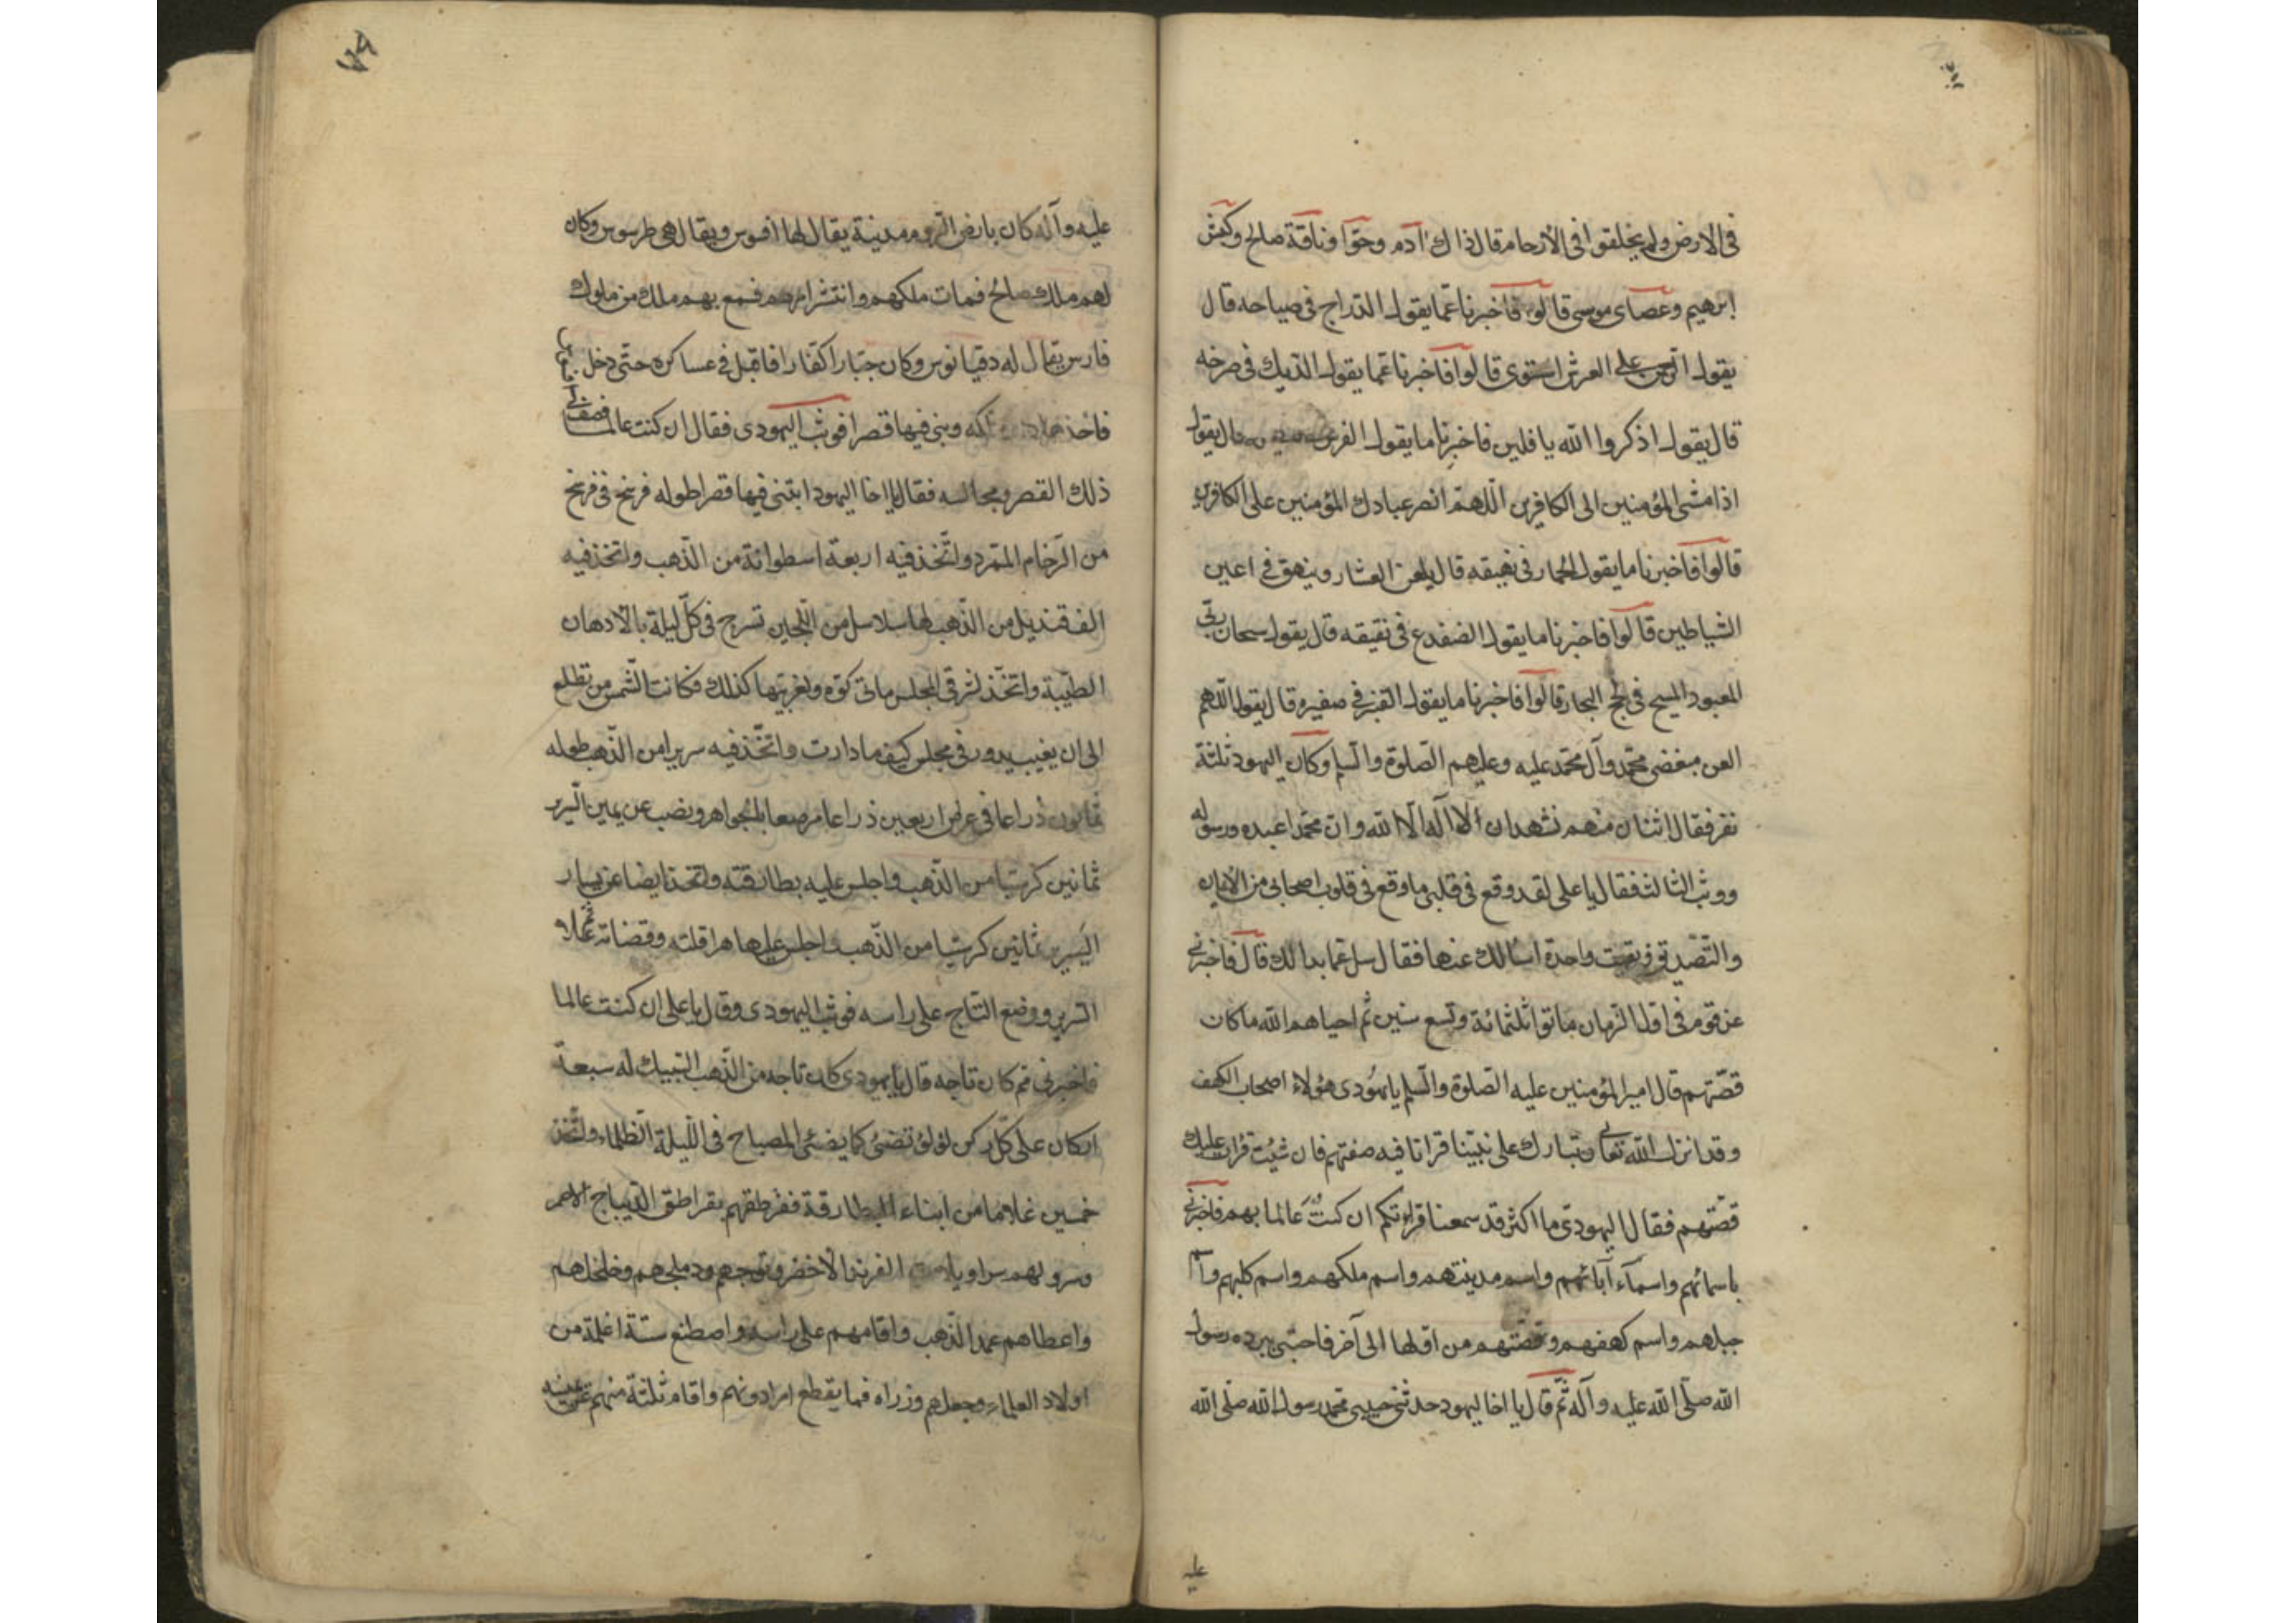 فی الارض ولم یخلقوا فی الأرحام قال ذالك آدم وحوّا وناقة صالح وکبش
ابرهیم وعصای موسی قالوا فاخبرنا عمّا یقول الدّراج فی صیاحه قال
یقول الرّحمن علی العرش استوی قالوا فاخبرنا عمّا یقول الدّیك فی صرخه
قال یقول اذکروا الله یا فلین فاخبرنا ما یقول الفرس قال یقول
اذا مشی المؤمنین الی الکافرین اللّهمّ انصر عبادك المؤمنین علی الکافرین
قالوا فاخبرنا ما یقول الحمار فی نهیقه قال یلعن العشار وینهق فی اعین
الشیاطین قالوا فاخبرنا ما یقول الضفدع فی نقیقه قال یقول سبحان ربّی
المعبود المسبح فی لجج البحار قالوا فاخبرنا ما یقول القنبر فی صفیره قال یقول اللّهم
العن مبغضی محمّد وآل محمّد علیه وعلیهم الصّلوة والسّلم وکان الیهود ثلثة
نفر فقال اثنان منهم نشهد ان لا اله الّا الله وانّ محمّدا عبده ورسوله
ووثب الثالث فقال یا علی لقد وقع فی قلبی ما وقع فی قلوب اصحابی من الأیمان
والتّصدیق وبقیت واحدة اسالك عنها فقال سل عمّا بدا لك قال فاخبرنی
عن قوم فی اوّل الزّمان ماتوا ثلثمائة وتسع سنین ثم احیاهم الله ما کان
قصّتهم قال امیر المؤمنین علیه الصّلوة والسّلم یا یهودی هؤلاء اصحاب الکهف
وقد انزل الله تعالی وتبارك علی نبیّنا قرانا فیه صفتهم فان شئت قرات علیك
قصّتهم فقال الیهودیّ ما اکثر قد سمعنا قراءتکم ان کنت عالما بهم فاخبرنی
باسمائهم واسمآء آبائهم واسم مدینتهم واسم ملکهم واسم کلبهم واسم
جبلهم واسم کهفهم وقصّتهم من اوّلها الی آخر فاحتبی ببرده رسول
الله صلّی الله علیه وآله ثمّ قال یا اخا الیهود حدّثنی حبیبی محمّد رسول الله صلّی الله
علیه
علیه وآله کان بارض الرّوم مدینة یقال لها افسوس ویقال هی طرسوس وکان
لهم ملك صالح فمات ملکهم وانتشر امرهم فسمع بهم ملك من ملوك
فارس یقال له دقیانوس وکان جبّارا کفّارا فاقبل فی عساکره حتّی دخل
فاخذها وبنی فیها قصرا فوثب الیهودی فقال ان کنت عالما فصف لی
ذلك القصر ومجالسه فقال یا اخا الیهود ابتنی فیها قصرا طوله فرسخ فی فرسخ
من الرّخام الممّرد واتّخذ فیه اربعة اسطوانة من الذّهب واتخذ فیه
الف قندیل من الذّهب لها سلاسل من اللّجین تسرج فی کلّ لیلة بالأدهان
الطیّبة واتّخذ لشرقی المجلس مائی کوّه ولغربیّها کذلك فکانت الشّمس من تطلع
الی ان یغیب یدور فی مجلس کیف ما دارت واتّخذ فیه سریرا من الذّهب طوله
ثمانون ذراعا فی عرض اربعین ذراعا مرصعا بالجواهر ونصب عن یمین السّریر
ثمانین کرسیّا من الذّهب واجلس علیه بطارقته واتّخذ ایضا عن یسار
السّریر ثمانین کرسیّا من الذّهب واجلس علیها هراقلته وقضاته ثم علا
السّریر ووضع التّاج علی راسه فوثب الیهودی وقال یا علی ان کنت عالما
فاخبرنی ثم کان تاجه قال یا یهودی کان تاجه من الذّهب السّبیك له سبعة
ارکان علی کلّ رکن لؤلؤ تضئ کما یضئ المصباح فی اللّیلة الظّلماء واتّخذ
خمسین غلاما من ابناء البطارقة فقرطقهم بقراطق الدّیباج الاحمر
وسرولهم سراویلات الفرند الأخضر وتوجهم ودملجهم وخلخلهم
واعطاهم عمد الذّهب واقامهم علی راسه واصطنع ستّة اغلمة من
اولاد العلماء وجعلهم وزراه فما یقطع امرا دونهم واقام ثلثة منهم عن یمینه